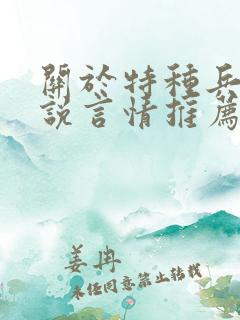 關於特種兵
說言情推薦
姜冉
未經同意禁止轉載